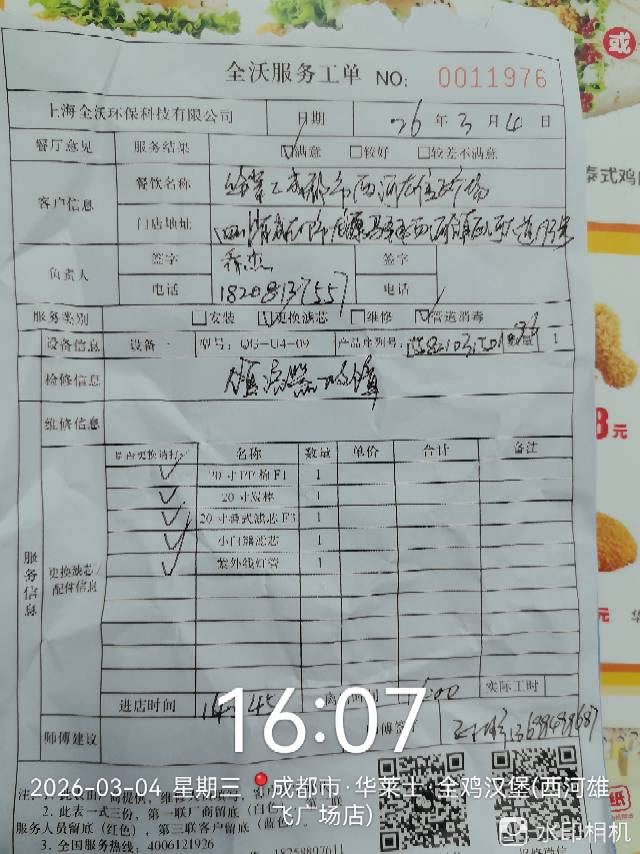 或
全沃服务工单 NO: 0011976
上海全沃环保科技有限公司 日期 26 年 3 月 4 日
餐厅意见 服务结果 ☑满意 □较好 □较差不满意
泰式鸡
客户信息 餐饮名称
门店地址
负责人 签字 乔杰 签字
电话 18208137557 电话
服务类别 □安装 ☑更换滤芯 □维修 ☑管道消毒
设备信息 设备一 型号: QG-U4-09 产品序列号: 1
检修信息
维修信息
8元
是否更换请打✓ 名称 数量 单价 合计 备注
✓ 20寸PP棉F1 1
✓ 20寸炭棒 1
✓ 20寸叠式滤芯F3 1
✓ 小白膜滤芯 1
✓ 紫外线灯管 1
服务信息 更换滤芯/配件信息
元
进店时间 14:45 1600 实际工时
16:07
师傅建议 13698498687
2026-03-04 星期三 成都市·华莱士 全鸡汉堡(西河雄飞广场店)
2. 此表一式三份, 第一联厂商留底(白色)
服务人员留底(红色), 第三联客户留底(蓝色)
3. 全国服务热线: 4006121926
18258897611
水印相机